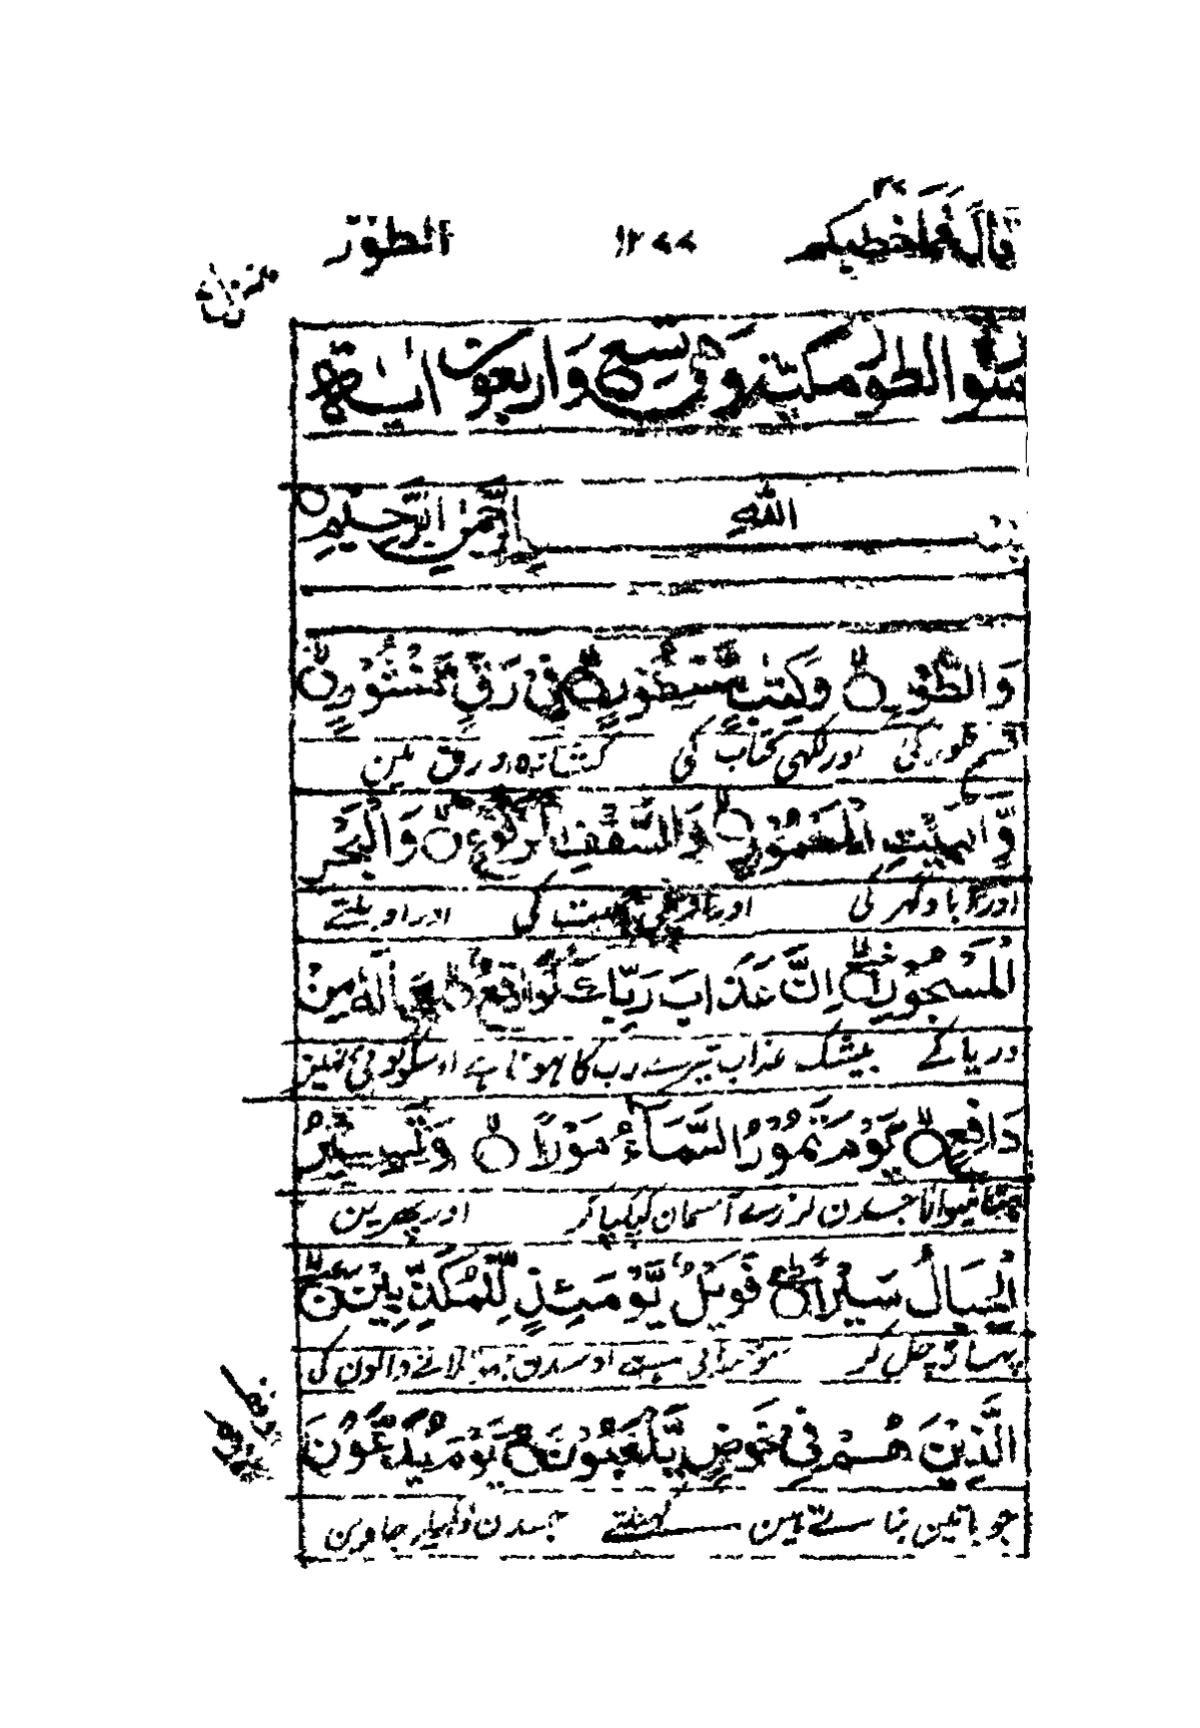 قال فما خطبكم ٢٧
١٢٧٧
الطور
سورة الطور مكية وهى تسع واربعون اية
بسم الله الرحمن الرحيم
وَالطُّوْرِ وَكِتٰبٍ مَّسْطُوْرٍ فِىْ رَقٍّ مَّنْشُوْرٍ
قسم طور کی اور لکھی کتاب کی کشادہ ورق مین
وَّالْبَيْتِ الْمَعْمُوْرِ وَالسَّقْفِ الْمَرْفُوْعِ وَالْبَحْرِ
اور آباد گھر کی اور چھت کی اور اوبلتے
الْمَسْجُوْرِ اِنَّ عَذَابَ رَبِّكَ لَوَاقِعٌ مَّالَهٗ مِنْ
دریا کے بیشک عذاب تیرے رب کا ہونا ہے اوسکو کوئی نہین
دَافِعٍ يَّوْمَ تَمُوْرُ السَّمَآءُ مَوْرًا وَّتَسِيْرُ
ہٹانیوالا جسدن لرزے آسمان کپکپا کر اور پھرین
الْجِبَالُ سَيْرًا فَوَيْلٌ يَّوْمَئِذٍ لِّلْمُكَذِّبِيْنَ
پہاڑ چل کر اوسدن والون کی
الَّذِيْنَ هُمْ فِىْ خَوْضٍ يَّلْعَبُوْنَ يَوْمَ يُدَعُّوْنَ
جو باتین بناتے ہین کھیلتے جسدن جاوین